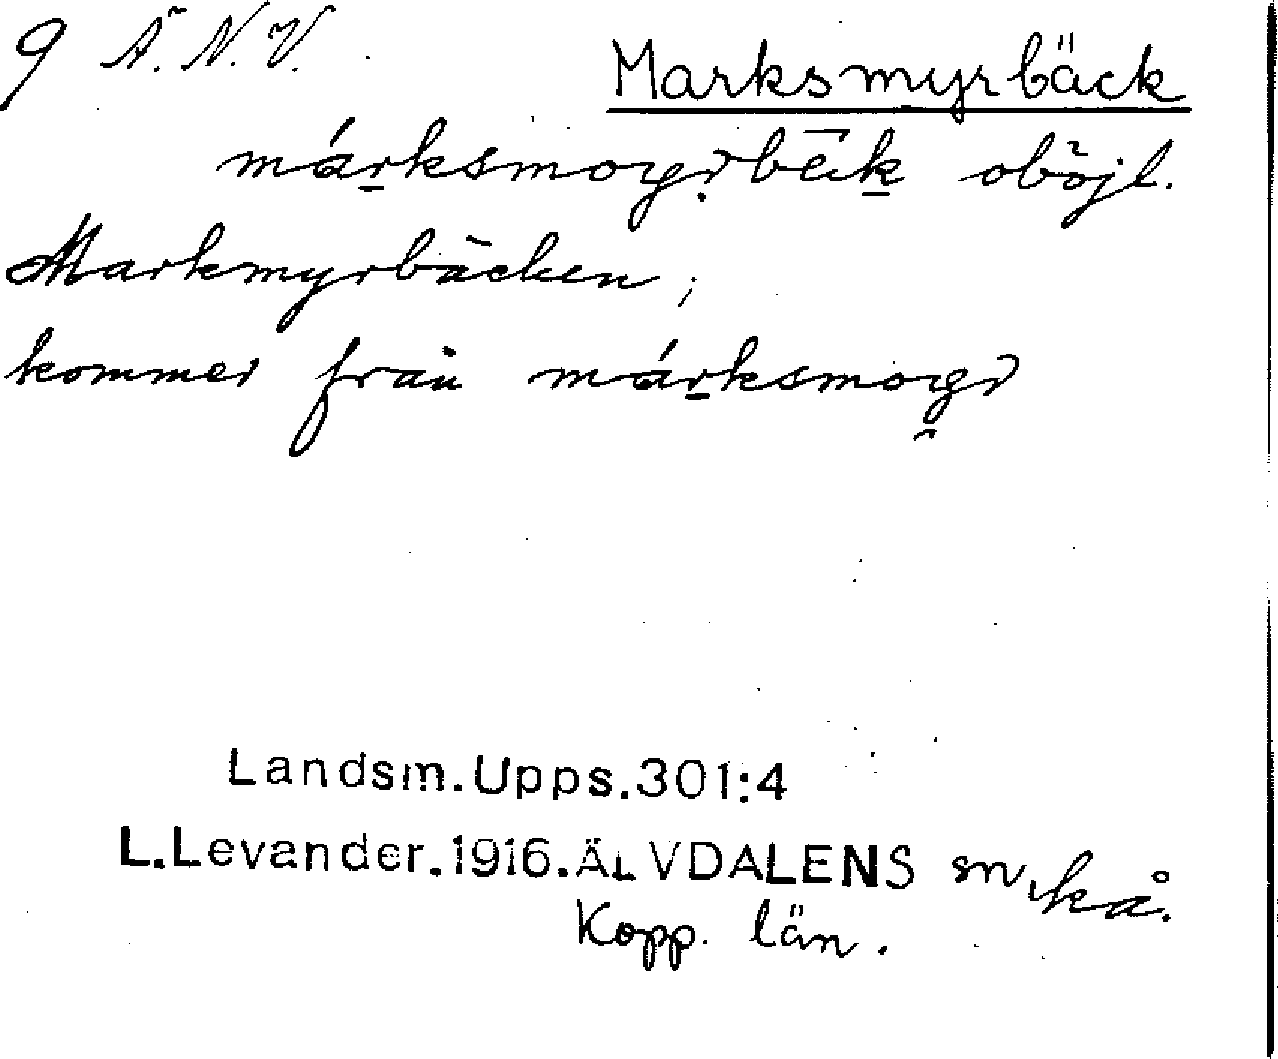 9 Ä.N.V.
Marksmyrbäck
márksmoyrbäk oböjl.
Markmyrbäcken,
kommer från márksmoyr
Landsm.Upps.301:4
L.Levander.1916.ÄLVDALENS sn, kå.
Kopp. län.